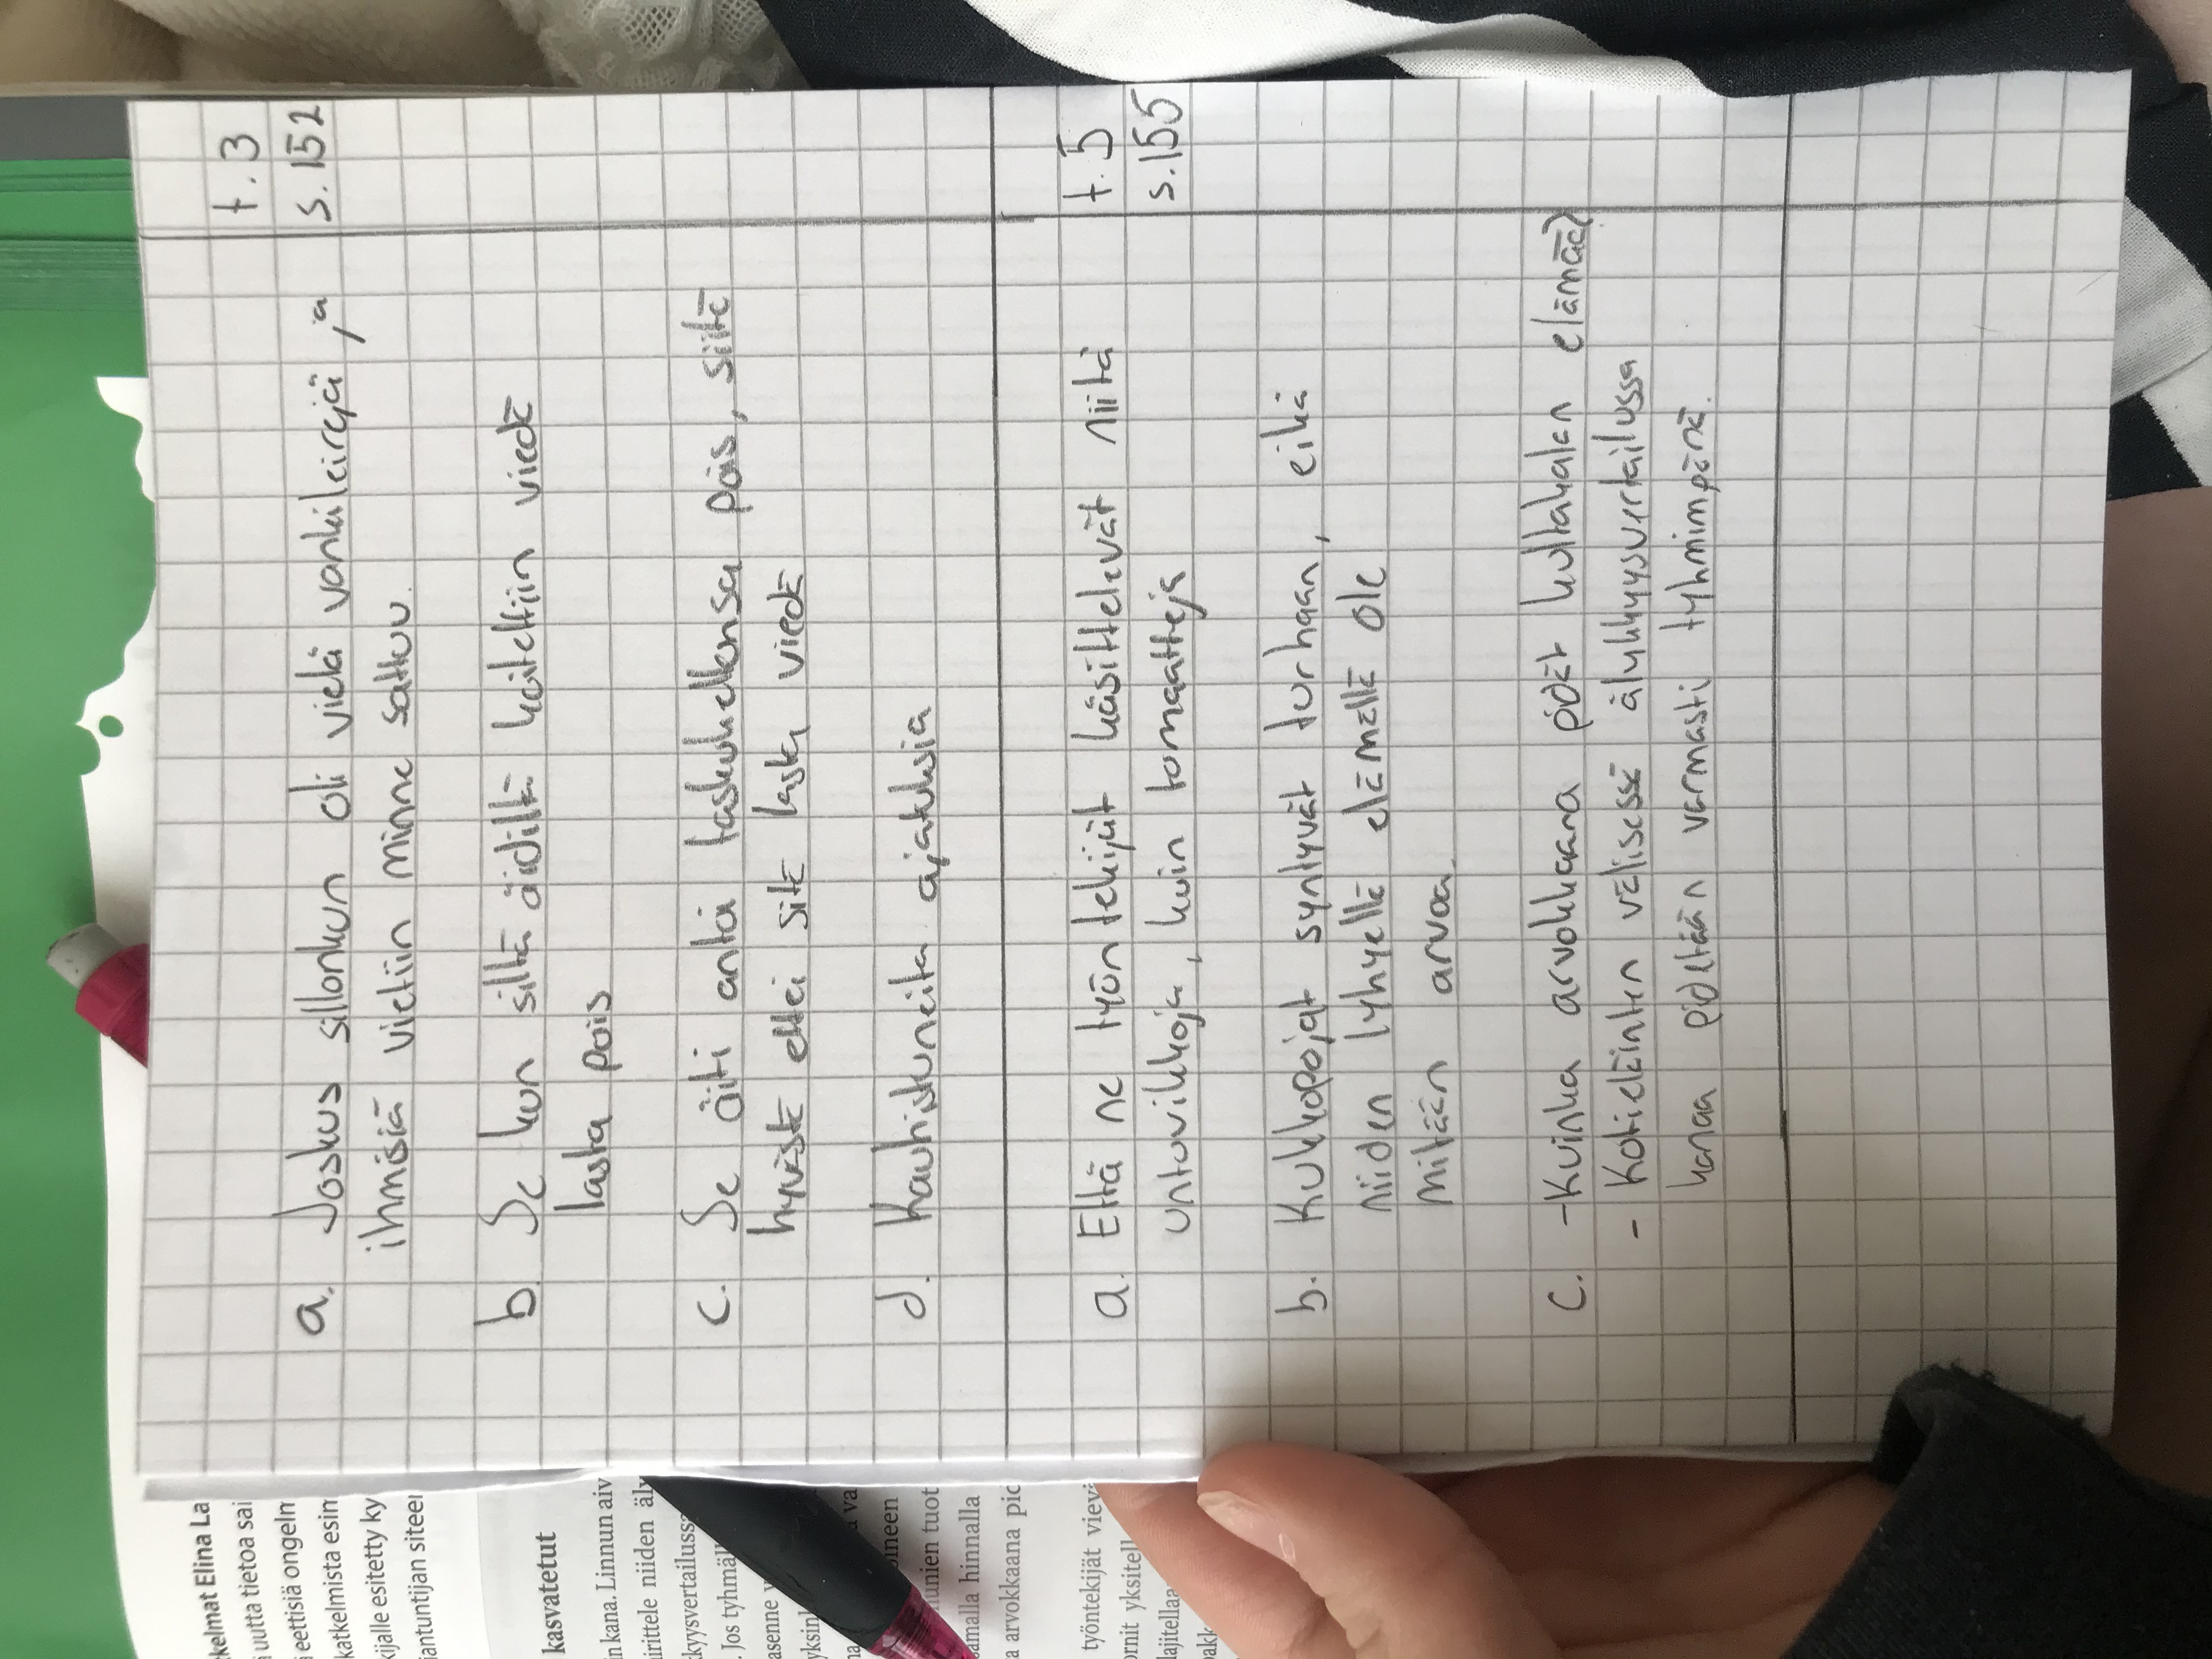 t.3
s.152
a. Joskus sillonkun oli vielä vankileirejä, ja
ihmisiä vietiin minne sattuu.
b. Se kun siltä äidiltä koitettiin viedä
lasta pois
c. Se äiti antoi taskukellonsa pois, siitä
hyvästä ettei sitä lasta viedä
d. Kauhistuneita ajatuksia
t.5
s.155
a. Että ne työntekijät käsittelevät niitä
untuvikkoja, kuin tomaatteja
b. Kukkopojat syntyvät turhaan, eikä
niiden lyhyellä elämällä ole
mitään arvoa.
c. -Kuinka arvokkaana pidät kultakalan elämää?
- Kotieläinten välisessä älykkyysvertailussa
kanaa pidetään varmasti tyhmimpänä.
kelmat Elina La
uutta tietoa sai
eettisiä ongelm
katkelmista esim
kijalle esitetty ky
jantuntijan siteer
kasvatetut
in kana. Linnun aiv
irittele niiden äly
kyysvertailussa
. Jos tyhmäl
asenne v
yksin
oineen
unien tuot
samalla hinnalla
a arvokkaana pid
työntekijät vievä
ornit yksitell
lajitellaa
pakk